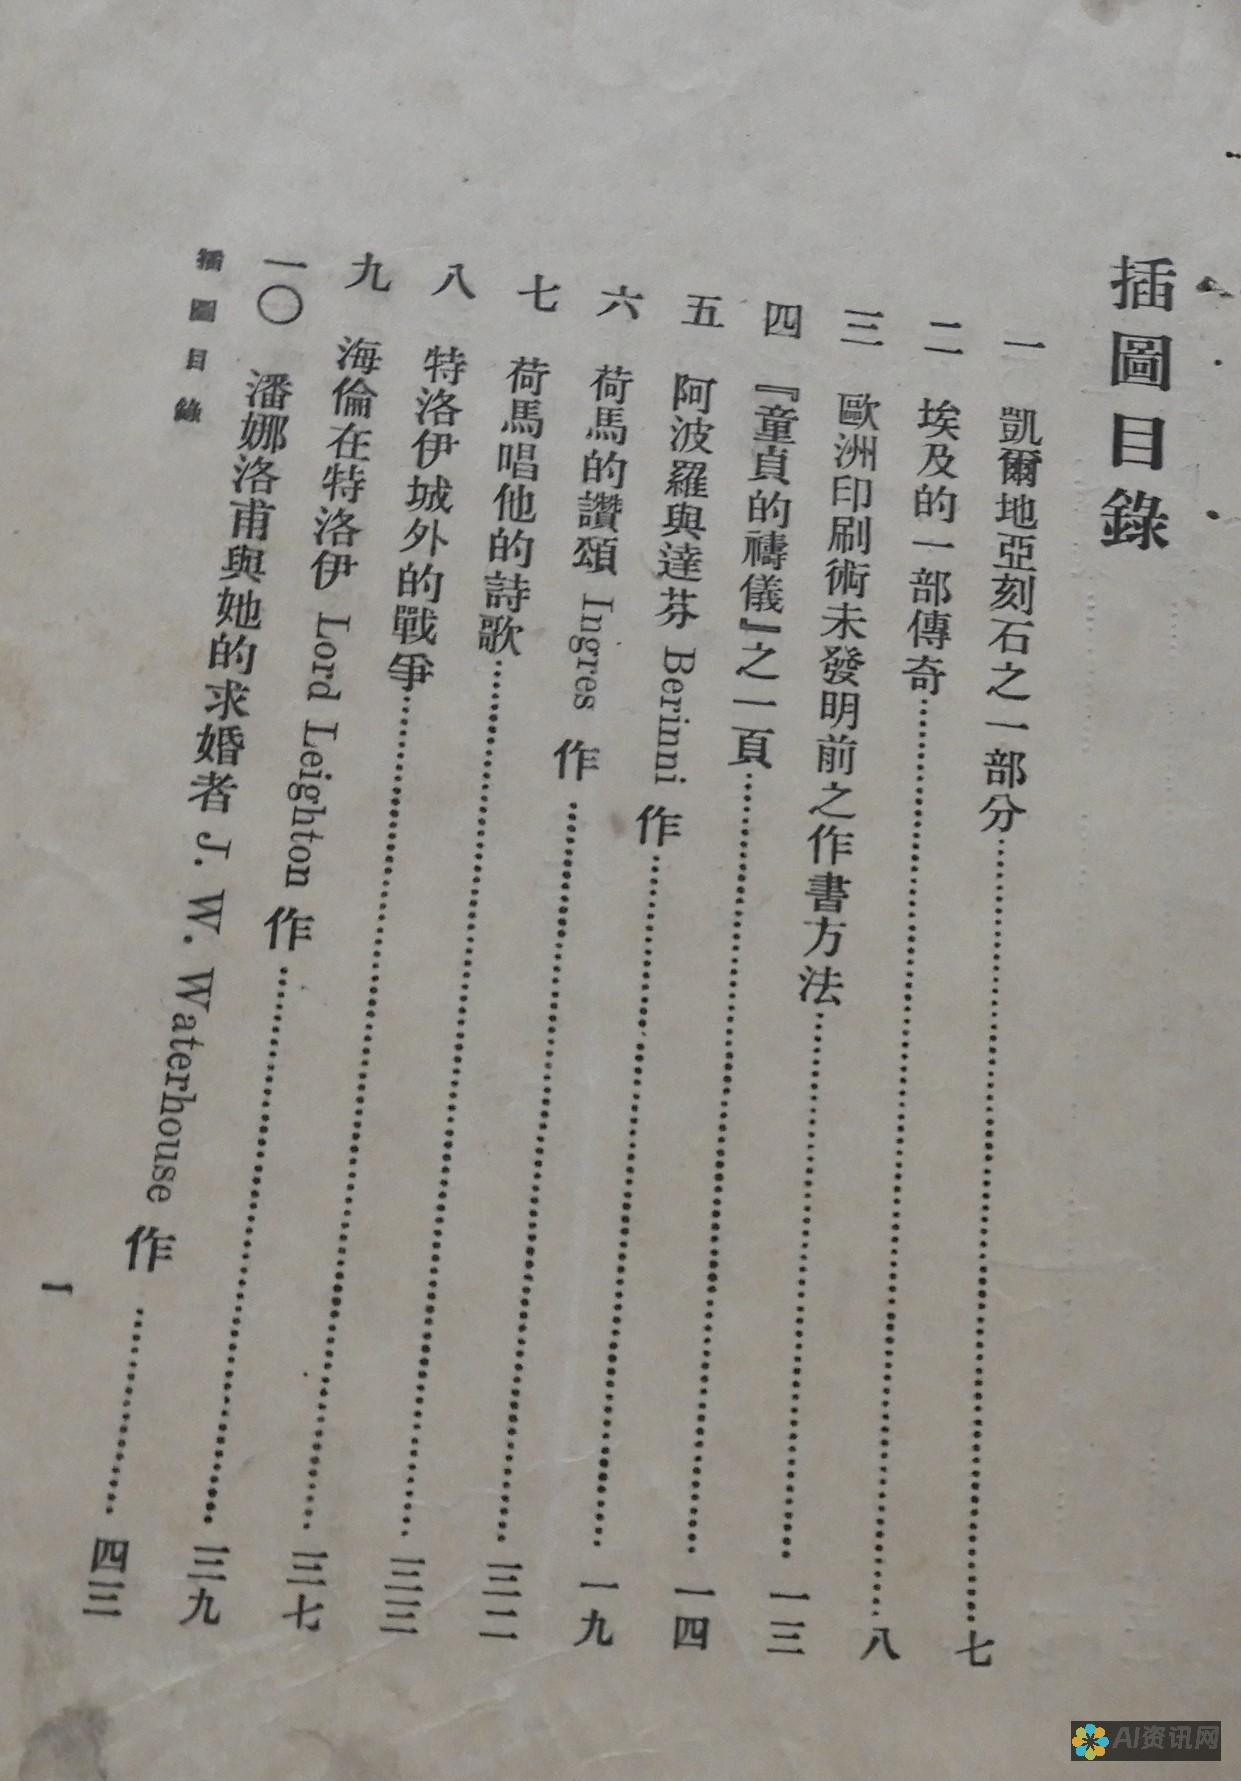 插圖目錄
一 凱爾地亞刻石之一部分……………………七
二 埃及的一部傳奇……………………八
三 歐洲印刷術未發明前之作書方法……………………一三
四 『童貞的禱儀』之一頁……………………一四
五 阿波羅與達芬 Berinni 作……………………一九
六 荷馬的讚頌 Ingres 作……………………三二
七 荷馬唱他的詩歌……………………三三
八 特洛伊城外的戰爭……………………三七
九 海倫在特洛伊 Lord Leighton 作……………………三九
一〇 潘娜洛甫與她的求婚者 J. W. Waterhouse 作…………四三
插圖目錄
一
AI资讯网